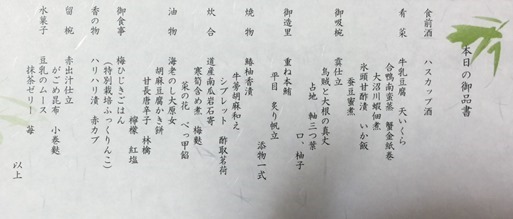 本日の御品書
食前酒 ハスカップ酒
肴菜 牛乳豆腐 天いくら
合鴨南蛮蒸 蟹金紙巻
大沼川蝦佃煮
氷頭甘酢漬 いか飯
蚕豆蜜煮
御吸椀 雲仕立
烏賊と大根の真丈
占地 軸三つ葉
口、柚子
御造里 重ね本鮪
平目 炙り帆立
添物一式
焼物 鰆柚香漬
牛蒡胡麻和え
シブレット 酢取茗荷
炊合 道産南瓜岩石寄
寒筍含め煮 梅麩
菜の花 べっ甲餡
油物 海老のし大原女
胡麻豆腐かき餅
甘長唐辛子 林檎
檸檬 紅塩
御食事 梅ひじきごはん
(特別栽培ふっくりんこ)
香の物 ハリハリ漬 赤カブ
留椀 赤出汁仕立
がごめ昆布 小巻麩
水菓子 豆乳のムース
抹茶ゼリー 苺
以上